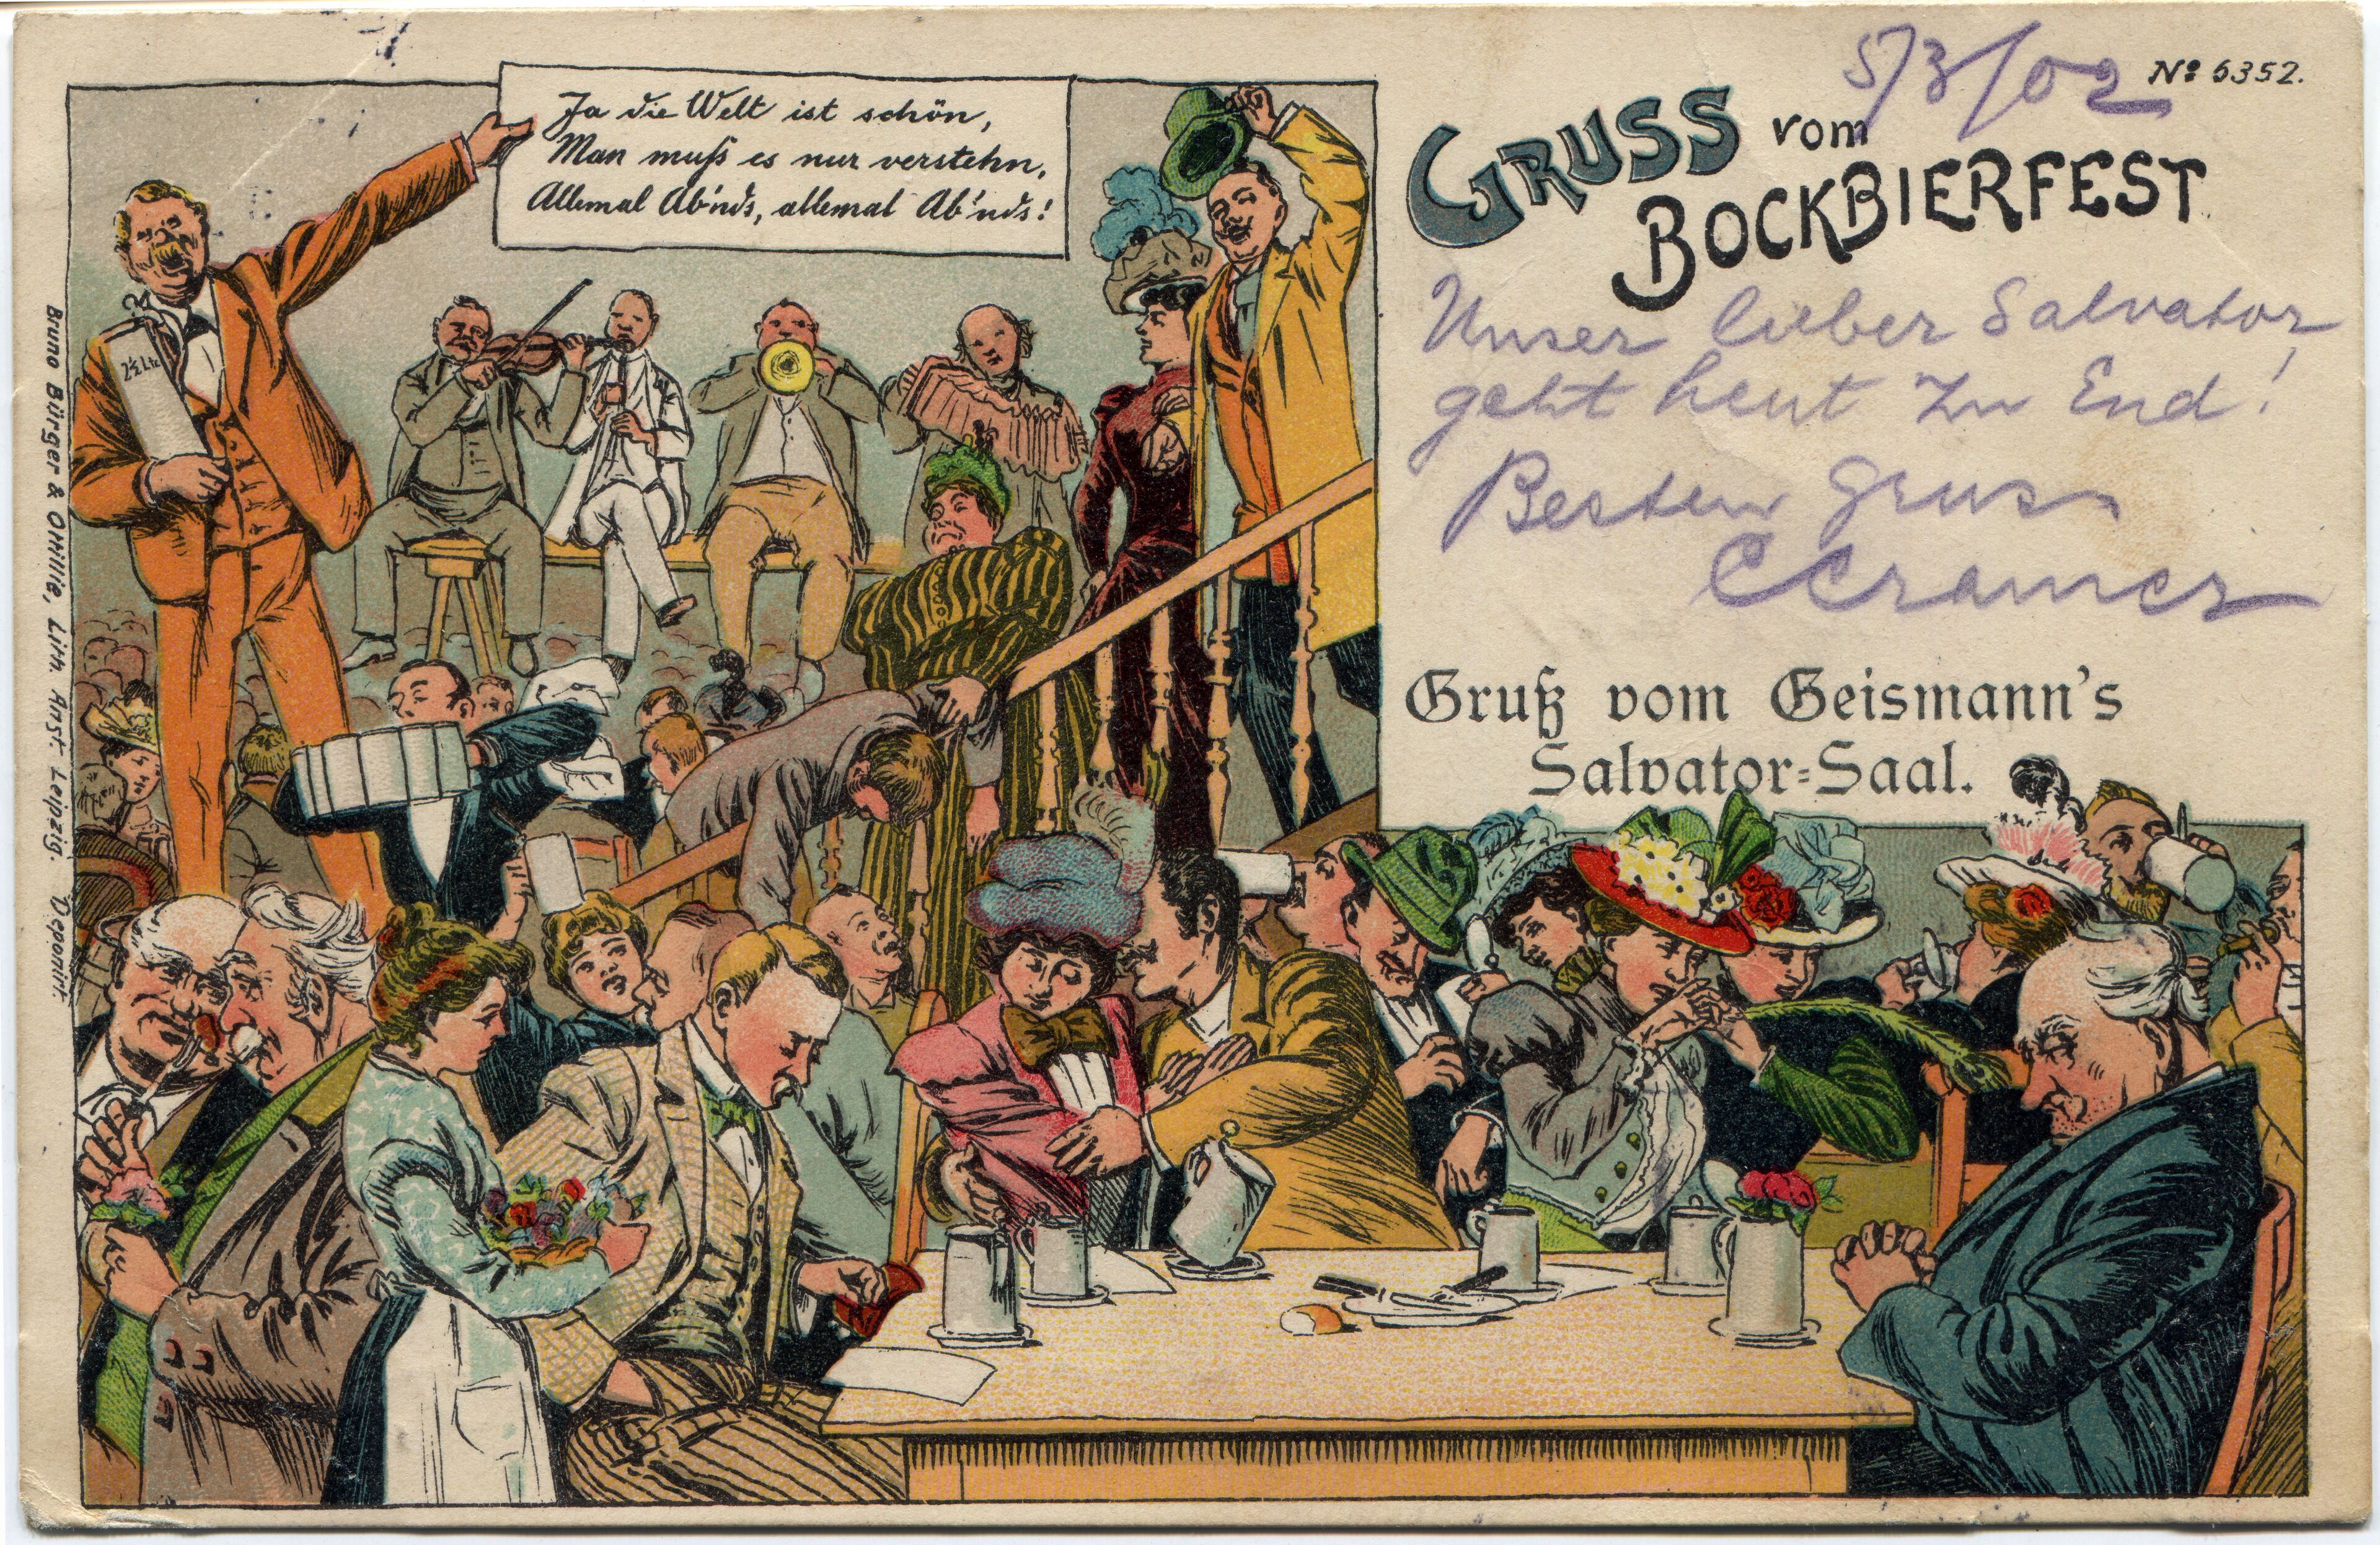 Ja die Welt ist schön,
Man muß es nur verstehn,
Allemal Ab'nds, allemal Ab'nds!
2½ Ltr
Bruno Bürger & Ottillie, Lith. Anst. Leipzig. Deponirt.
5/3/02
No 6352.
GRUSS vom
BOCKBIERFEST
Unser lieber Salvator
geht heut zu End!
Besten Gruss
CCramer
Gruß vom Geismann's
Salvator=Saal.